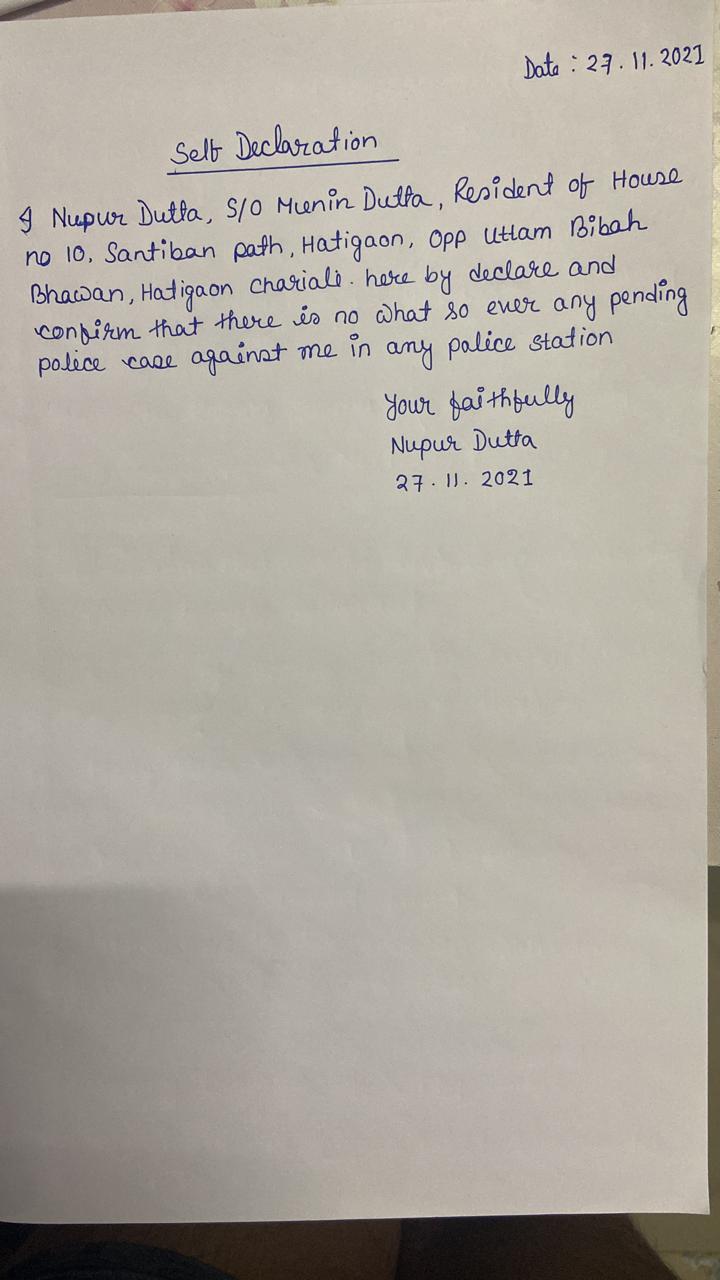 Date : 27.11.2021
Self Declaration
I Nupur Dutta, S/O Munin Dutta, Resident of House
no 10, Santiban path, Hatigaon, Opp Uttam Bibah
Bhawan, Hatigaon Chariali. here by declare and
confirm that there is no what so ever any pending
police case against me in any police station
Your faithfully
Nupur Dutta
27.11.2021